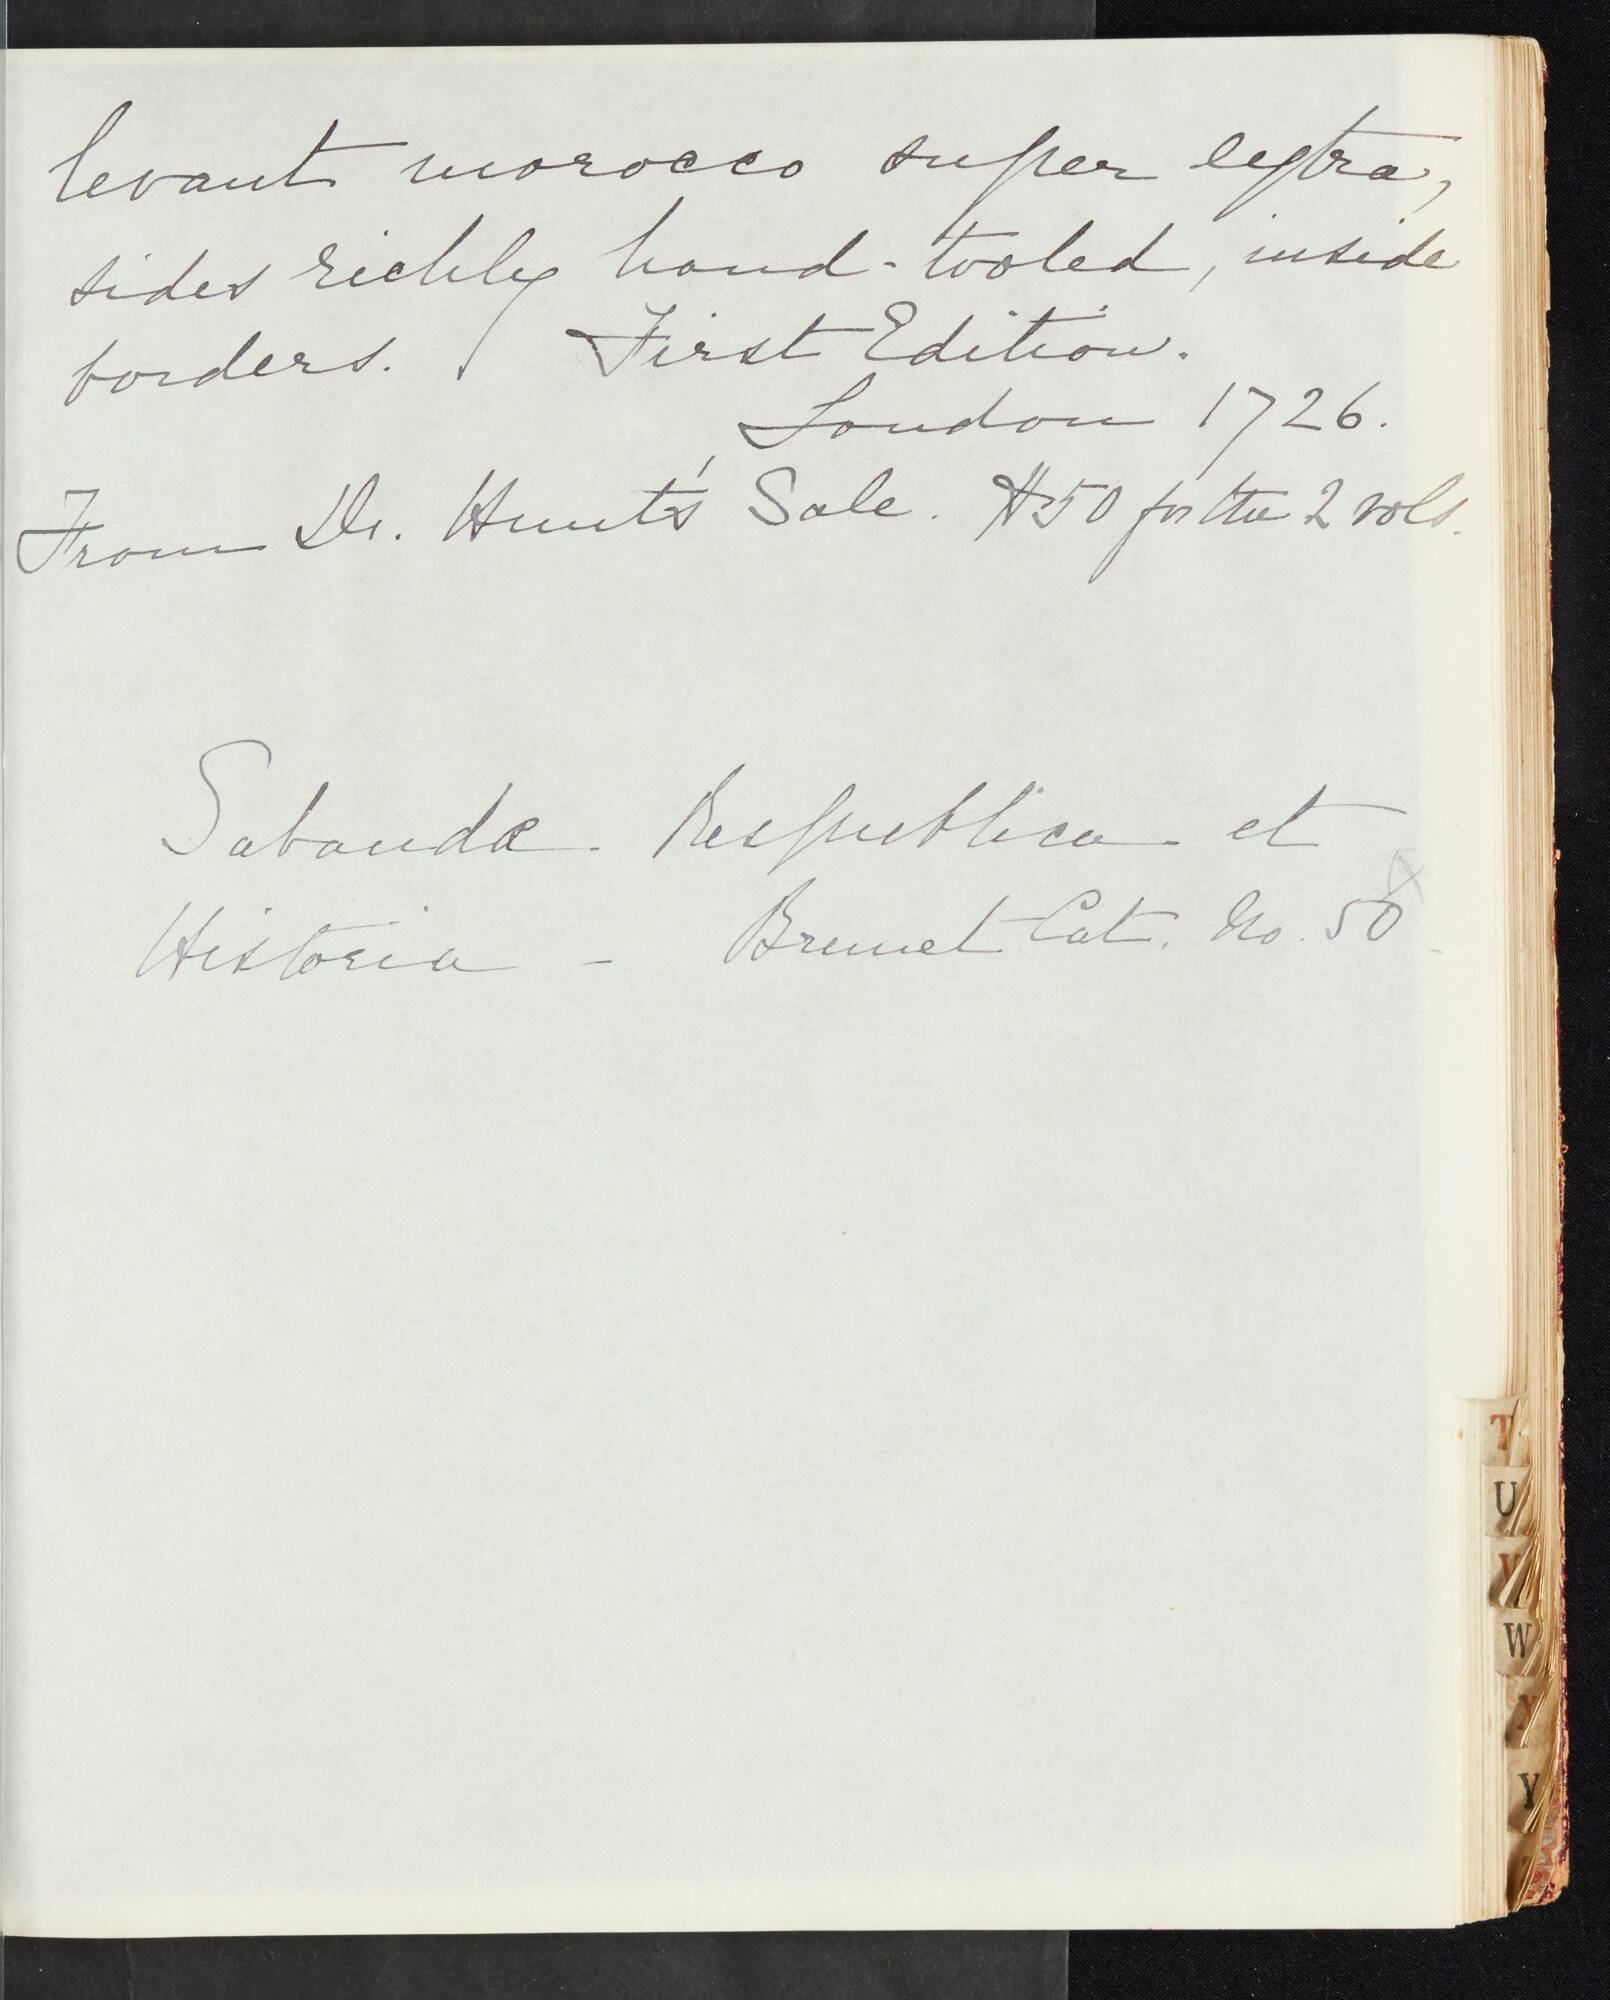 levant morocco super extra,
sides richly hand-tooled, inside
borders. First Edition.
London 1726.
From Dr. Hunt's Sale. $50 for the 2 vols.
Sabaudæ - Respublica - et
Historia - Brunet Cat. No. 50
T
U
V
W
X
Y